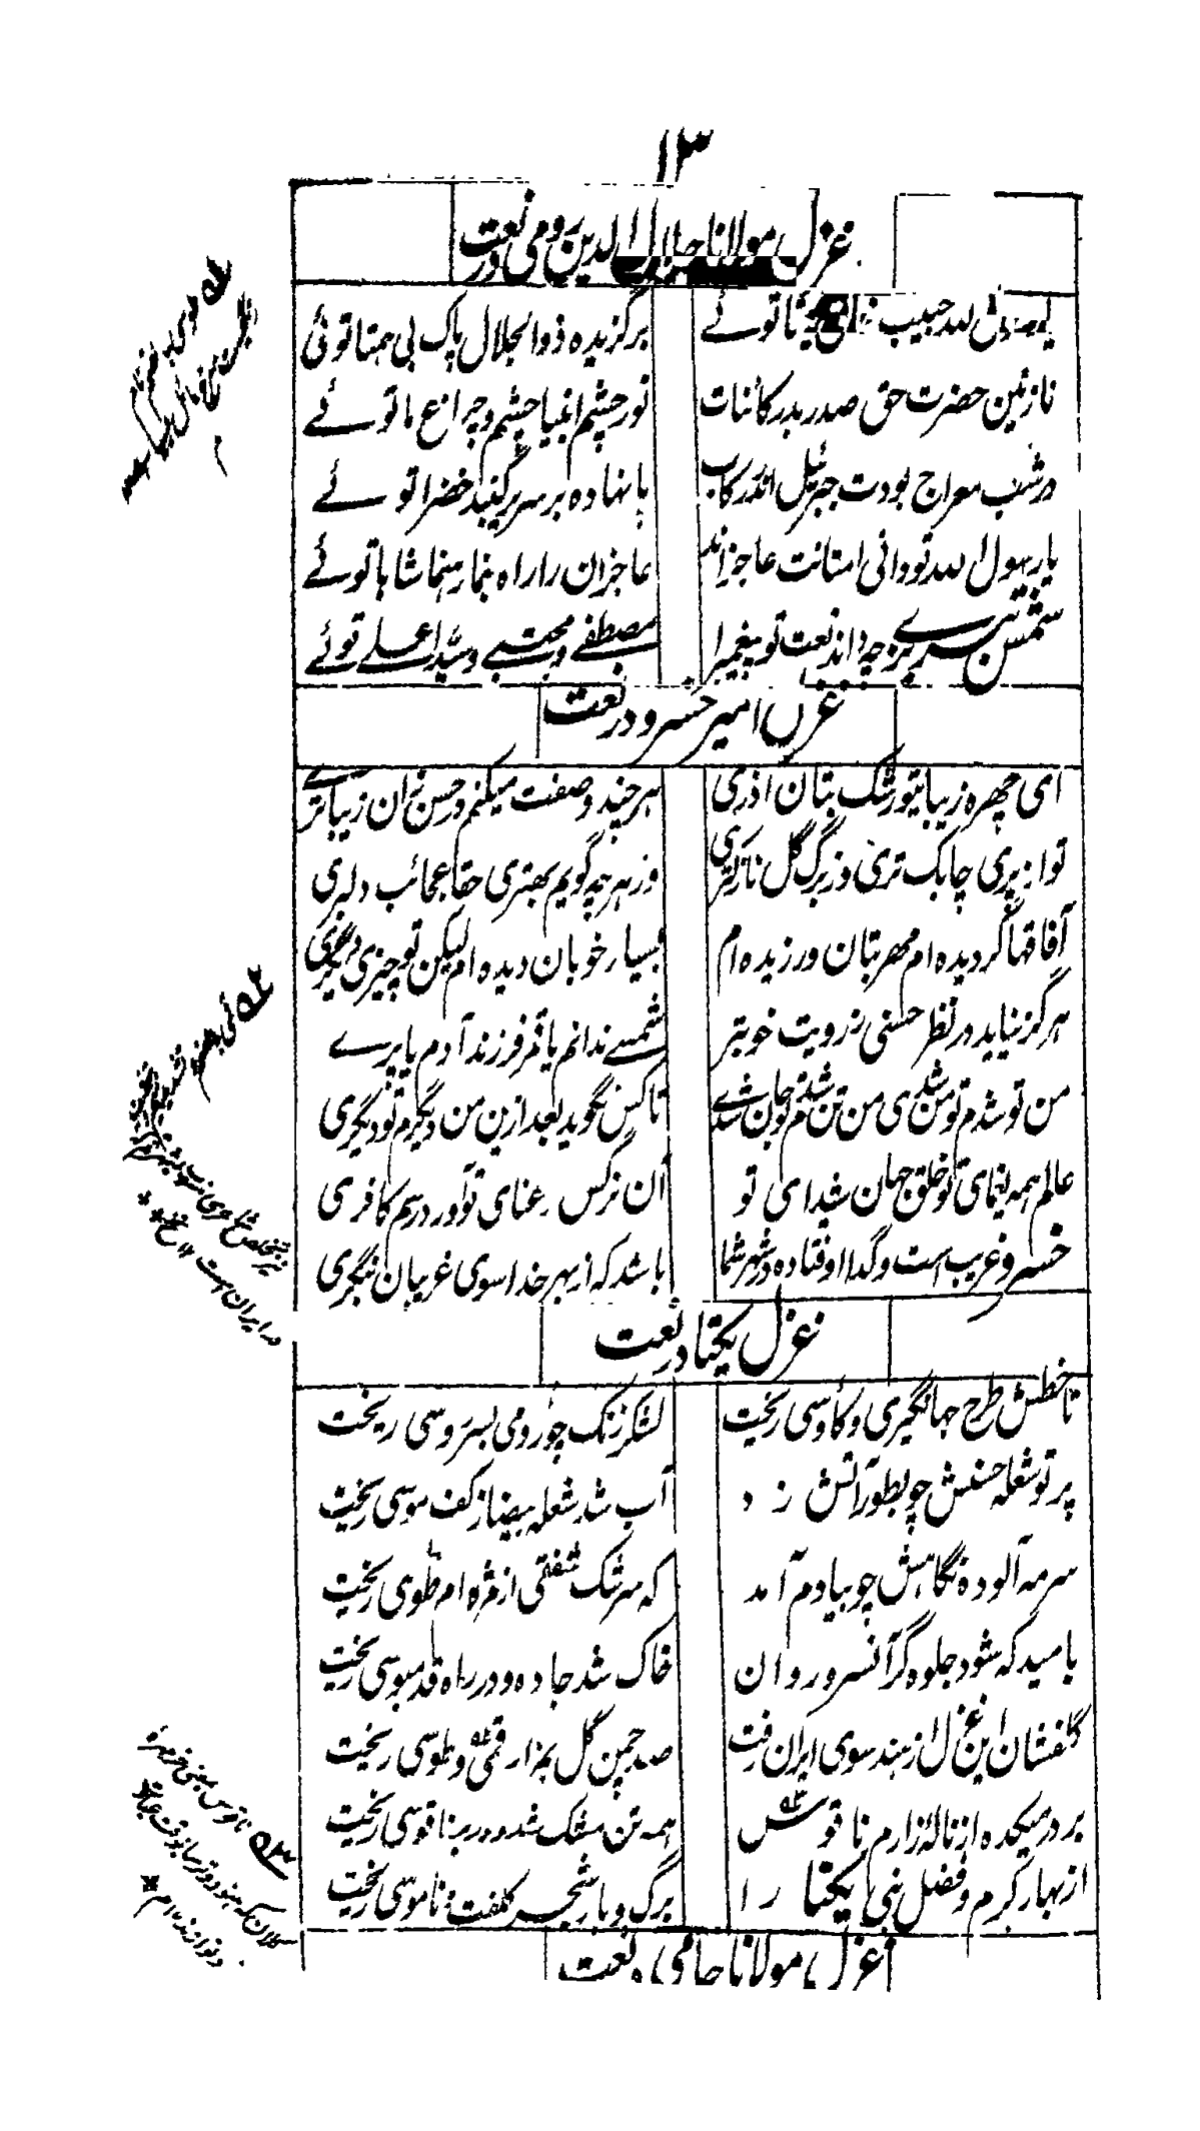 ۱۳
غزل مولانا جلال الدین رومی در نعت
یا رسول الله حبیب خالق یکتا توئے
برگزیده ذوالجلال پاک بی همتا توئی
نازنین حضرت حق صدر بدر کائنات
نور چشم انبیا چشم و چراغ ما توئے
در شب معراج بودت جبرئیل اندر رکاب
پا نهاده بر سر گنبد خضرا توئے
یا رسول الله تو دانی امتانت عاجز اند
عاجزان را راه نما رهنما شاها توئے
شمس تبریزے چه داند نعت تو پیغمبرا
مصطفے و مجتبے و سید اعلے توئے
غزل امیر خسرو در نعت
ای چهره زیبای تو رشک بتان آذری
هر چند وصفت میکنم در حسن زان زیباترے
تو از پری چابک تری وز برگ گل نازکتری
وز هر چه گویم بهتری حقا عجائب دلبری
آفاقها گردیده ام مهر بتان ورزیده ام
بسیار خوبان دیده ام لیکن تو چیزی دیگری
هرگز نیاید در نظر حسنی ز رویت خوبتر
شمسے ندانم یا قمر فرزند آدم یا پرے
من تو شدم تو من شدی من تن شدم تو جان شدے
تا کس نگوید بعد ازین من دیگرم تو دیگری
عالم همه یغمای تو خلق جهان شیدای تو
آن نرگس رعنای تو آورد رسم کافری
خسرو غریب است و گدا افتاده در شهر شما
باشد که از بهر خدا سوی غریبان بنگری
غزل یکتا در نعت
تا خطش طرح جهانگیری و کاوسی ریخت
لشکر زنگ چو رومی بسر روسی ریخت
پرتو شعله حسنش چو بطور آتش زد
آب شد شعله بیضا ز کف موسی ریخت
سرمه آلوده نگاهش چو بیادم آمد
که سرشک شفقی از مژه ام طوسی ریخت
بامید که شود جلوه گر آنسرو روان
خاک شد جاده و در راه قدمبوسی ریخت
گلفشان این غزل از هند سوی ایران رفت
صد چمن گل بمزار قمی و طوسی ریخت
بر در میکده از ناله زارم ناقوس
همه تن مشک شد و در بر ناقوسی ریخت
از بهار کرم و فضل نبی یکتا را
برگ و بار شجر کلفت ناموسی ریخت
غزل مولانا جامی در نعت